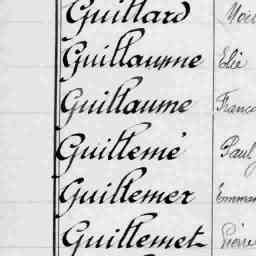 Guillard
Guillaume Elie
Guillaume
Guillemé Paul
Guillemer
Guillemet Pierre